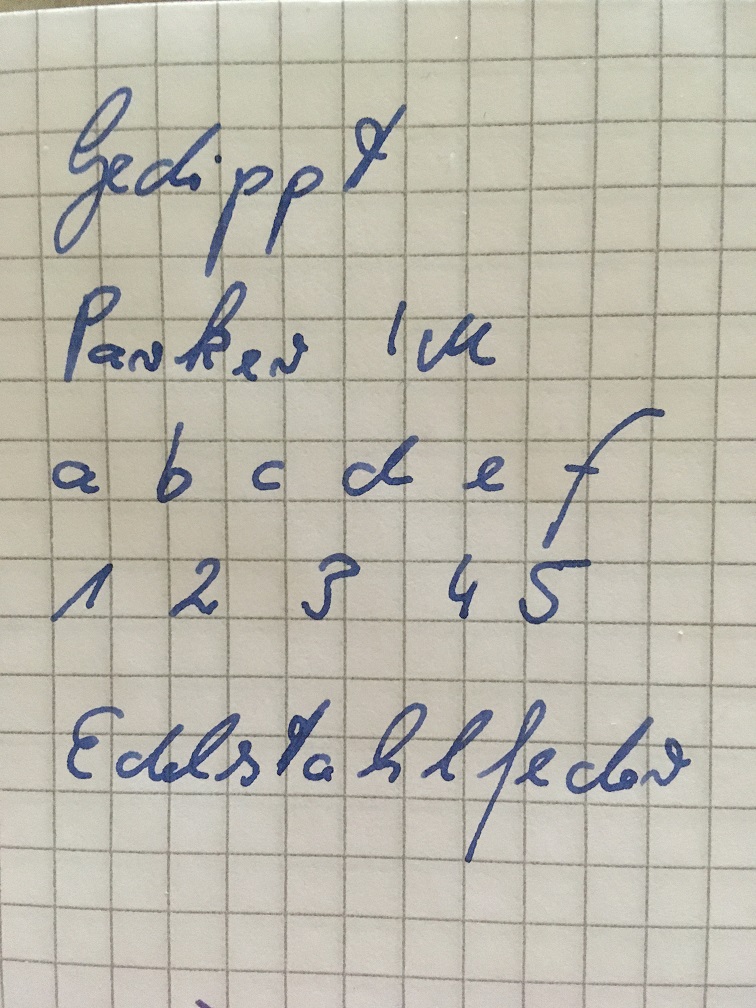 Gedippt
Parker IM
a b c d e f
1 2 3 4 5
Edelstahlfeder